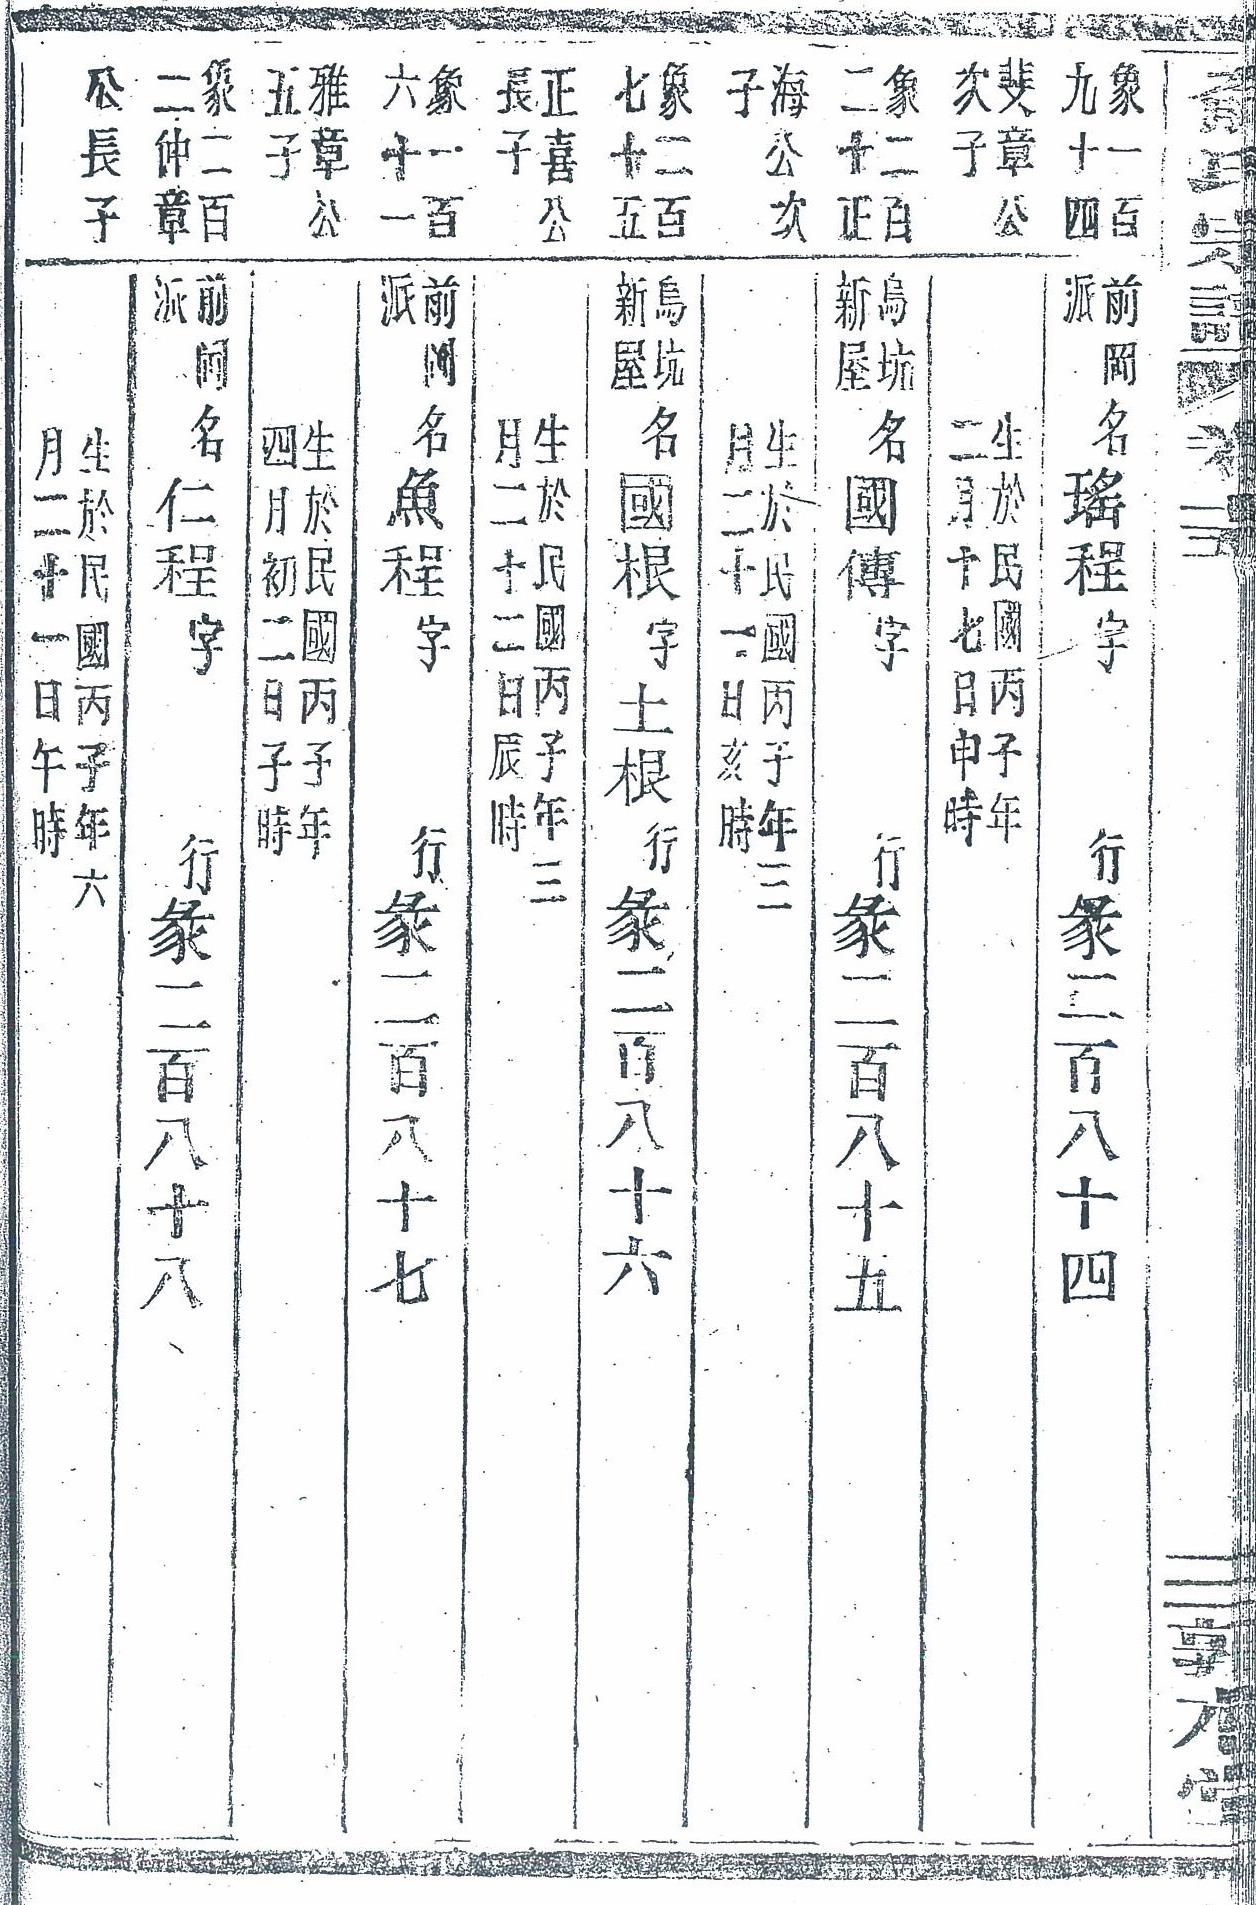 象一百
九十四
斐章公
次子
前岡
派
名瑤程字
行彖二百八十四
生於民國丙子年
二月十七日申時
象二百
二十正
海公次
子
烏坑
新屋
名國傳字
行彖二百八十五
生於民國丙子年三
月二十一日亥時
象二百
七十五
正喜公
長子
烏坑
新屋
名國根字土根
行彖二百八十六
生於民國丙子年三
月二十二日辰時
象一百
六十一
雅章公
五子
前岡
派
名魚程字
行彖二百八十七
生於民國丙子年
四月初二日子時
象二百
二仲章
公長子
前岡
派
名仁程字
行彖二百八十八
生於民國丙子年六
月二十一日午時